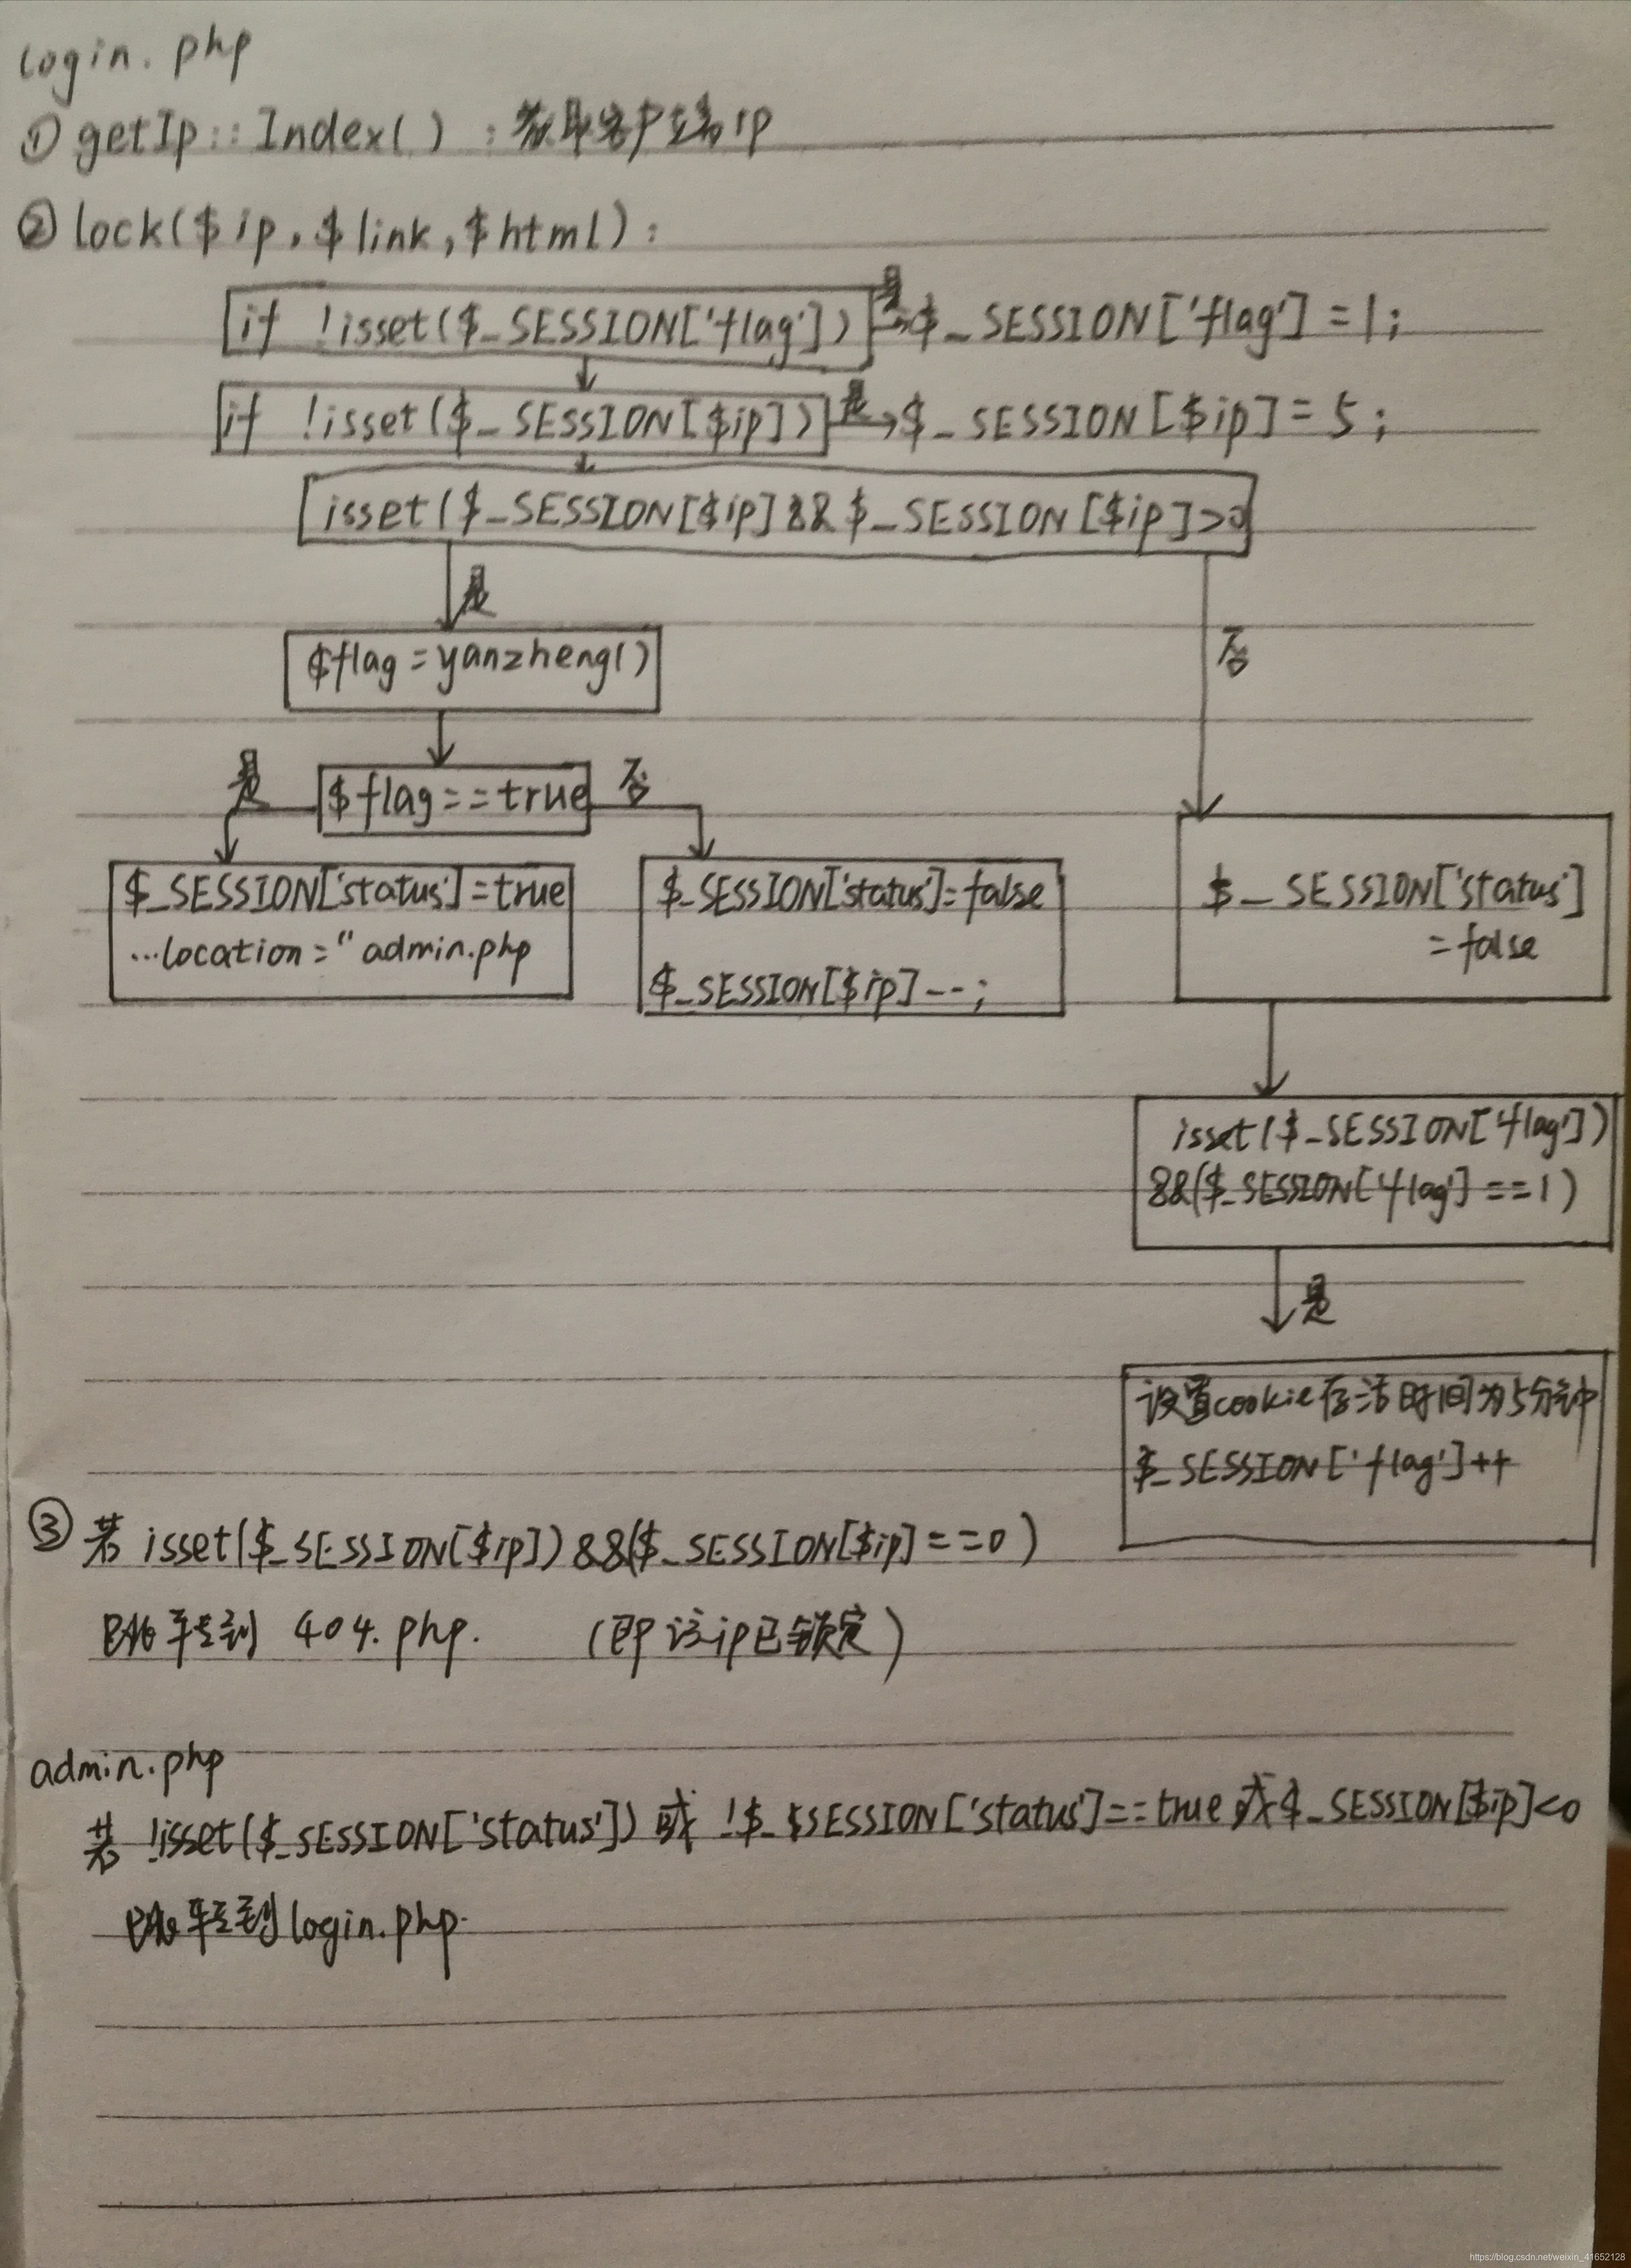 login.php
① getIp::Index() : 获取客户端ip
② lock($ip,$link,$html):
if !isset($_SESSION['flag']) 是 $_SESSION['flag']=1;
if !isset($_SESSION[$ip]) 是 $_SESSION[$ip]=5;
isset($_SESSION[$ip]&&$_SESSION[$ip]>0
是
否
$flag=yanzheng()
是 $flag==true 否
$_SESSION['status']=true
...location="admin.php
$_SESSION['status']=false
$_SESSION[$ip]--;
$_SESSION['status']
=false
isset($_SESSION['flag'])
&&($_SESSION['flag']==1)
是
设置cookie存活时间为5分钟
$_SESSION['flag']++
③ 若 isset($_SESSION[$ip])&&($_SESSION[$ip]==0)
跳转到 404.php. (即该ip已锁定)
admin.php
若 !isset($_SESSION['status']) 或 !$_$SESSION['status']==true 或 $_SESSION[$ip]<0
跳转到login.php.
https://blog.csdn.net/weixin_41652128